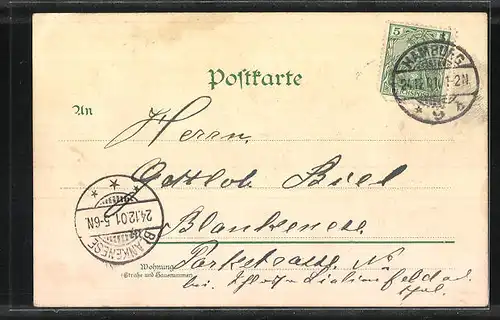 5
HAMBURG
24.12.01. 1-2N.
* 5 *
Postkarte
An
Herrn
Gottlob Biel
Blankenese
Parkstrasse No
bei
24.12.01. 5-6N.
BLANKENESE
Wohnung
(Straße und Hausnummer)